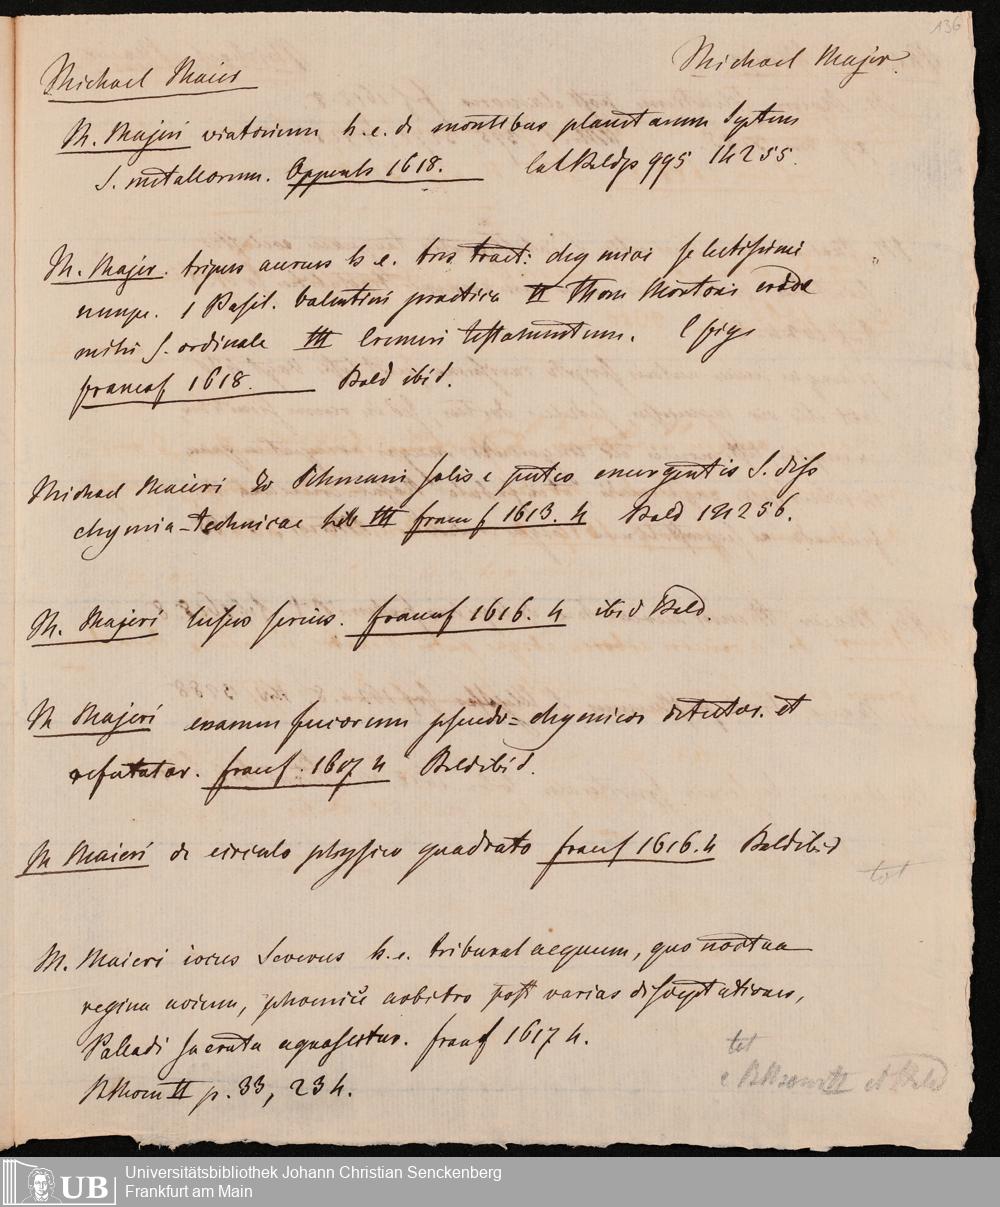 136
Michael Maier
Michael Majer.
M. Majeri viatorium h. e. de montibus planetarum septem
S. metallorum. Oppenh 1618. 995 14255.
M. Majer. tripus aureus h e. tres tract: chymici selectissimi
nempe. 1 Basil. Valentini practica II Thom Nortoni
S. ordinale III Cremeri testamentum. C fig
francof 1618. Bald ibid.
Michael Maieri salis e puteo emergentis S. diss
chymia-technicae III francf 1613. 4 Bald 14256.
M. Majeri lusus serius. francof 1616. 4 ibid Bald.
M Majeri examen fucorum pseudo=chymicor detector. et
refutator. francf. 1617 4 Bald ibid.
M Maieri de circulo physico quadrato francf 1616. 4 Bald ibid
tet
M. Maieri iocus Severus h. e. tribunal aequum, quo noctua
regina avium, phoenice arbitro post varias disceptationes,
Palladi sacrata agnoscitur. francf 1617 4.
BThom II p. 33, 234.
tet
e et Bald
Universitätsbibliothek Johann Christian Senckenberg
Frankfurt am Main
UB